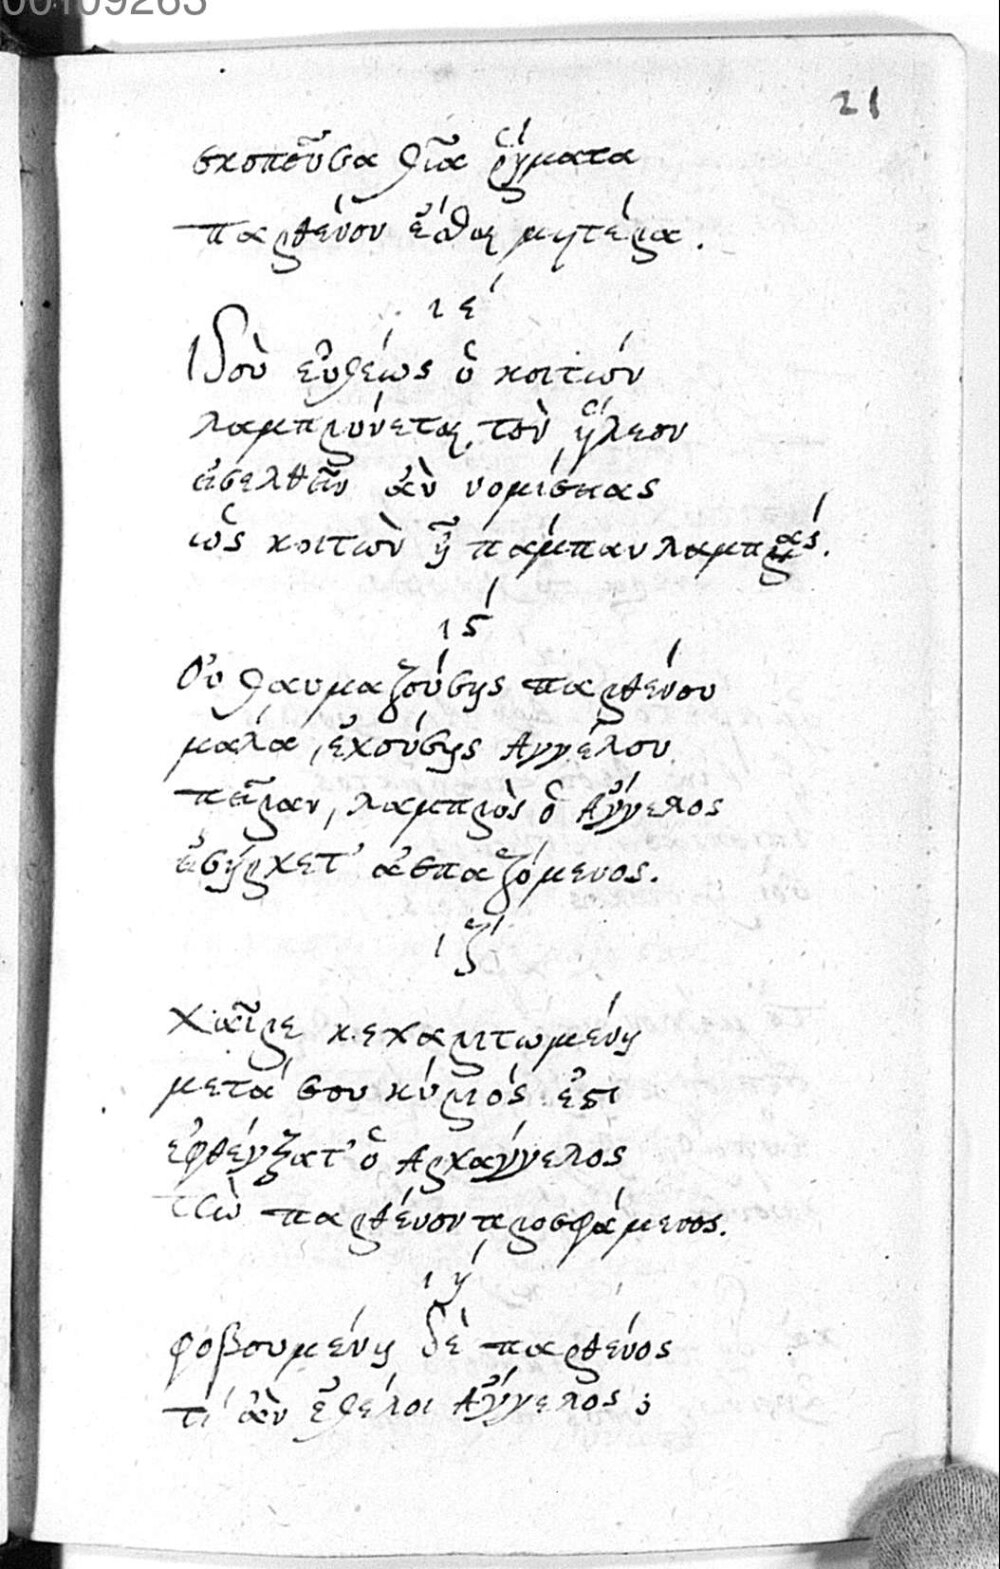 00109263
21
σκοποῦσα θεῖα ῥήματα
παρθένον εἶναι μητέρα.
ιέ
Ιδοὺ εὐθέως ὁ κοιτιόν
λαμπρύνεται, τὸν ἥλεον
εἰσελθεῖν ἂν νομίσειας
ὡς κοιτὼν ἦ πάμπαν λαμπράς.
ις΄
Οὐ θαυμαζούσης παρθένου
μάλα, ἐχούσης Αγγέλου
πεῖραν, λαμπρὸς ὁ Αγγελος
εἰσήρχετ' ἀσπαζόμενος.
ιζ΄
Χαῖρε κεχαριτωμένη
μετά σου κύριός ἐστι
ἐφθέγξατ' ὁ Αρχάγγελος
τὼ παρθένον προσφάμενος.
ιή
φοβουμένη δὲ παρθένος
τί ἂν ἐθέλοι Αγγελος;